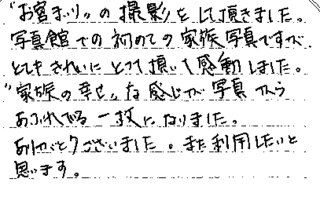 "お宮まいり"の撮影をして頂きました。
写真館での初めての家族写真ですが
とてもきれいにとって頂いて感動しました。
"家族の幸せ"な感じが写真から
あふれでる一枚になりました。
ありがとうございました。また利用したいと
思います。